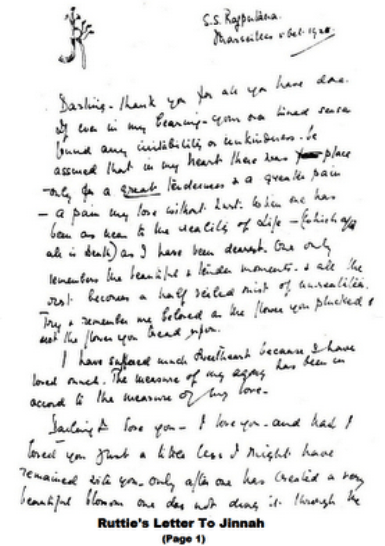 S.S. Rajputana.
Marseilles 5 Oct. 1928
Darling - thank you for all you have done.
If ever in my bearing - your tuned senses
found any irritability or unkindness - be
assured that in my heart there was place
only for a great tenderness & a greater pain
- a pain my love without hurt. When one has
been as near to the reality of Life - (which after
all is Death) as I have been dearest. One only
remembers the beautiful & tender moments - & all the
rest becomes a half veiled mist of unrealities.
Try & remember me beloved as the flower you plucked &
not the flower you tread upon.
I have suffered much sweetheart because I have
loved much. The measure of my agony has been in
accord to the measure of my love.
Darling I love you - I love you - and had I
loved you just a little less I might have
remained with you - only after one has created a very
beautiful blossom one does not drag it through the
Ruttie's Letter To Jinnah
(Page 1)